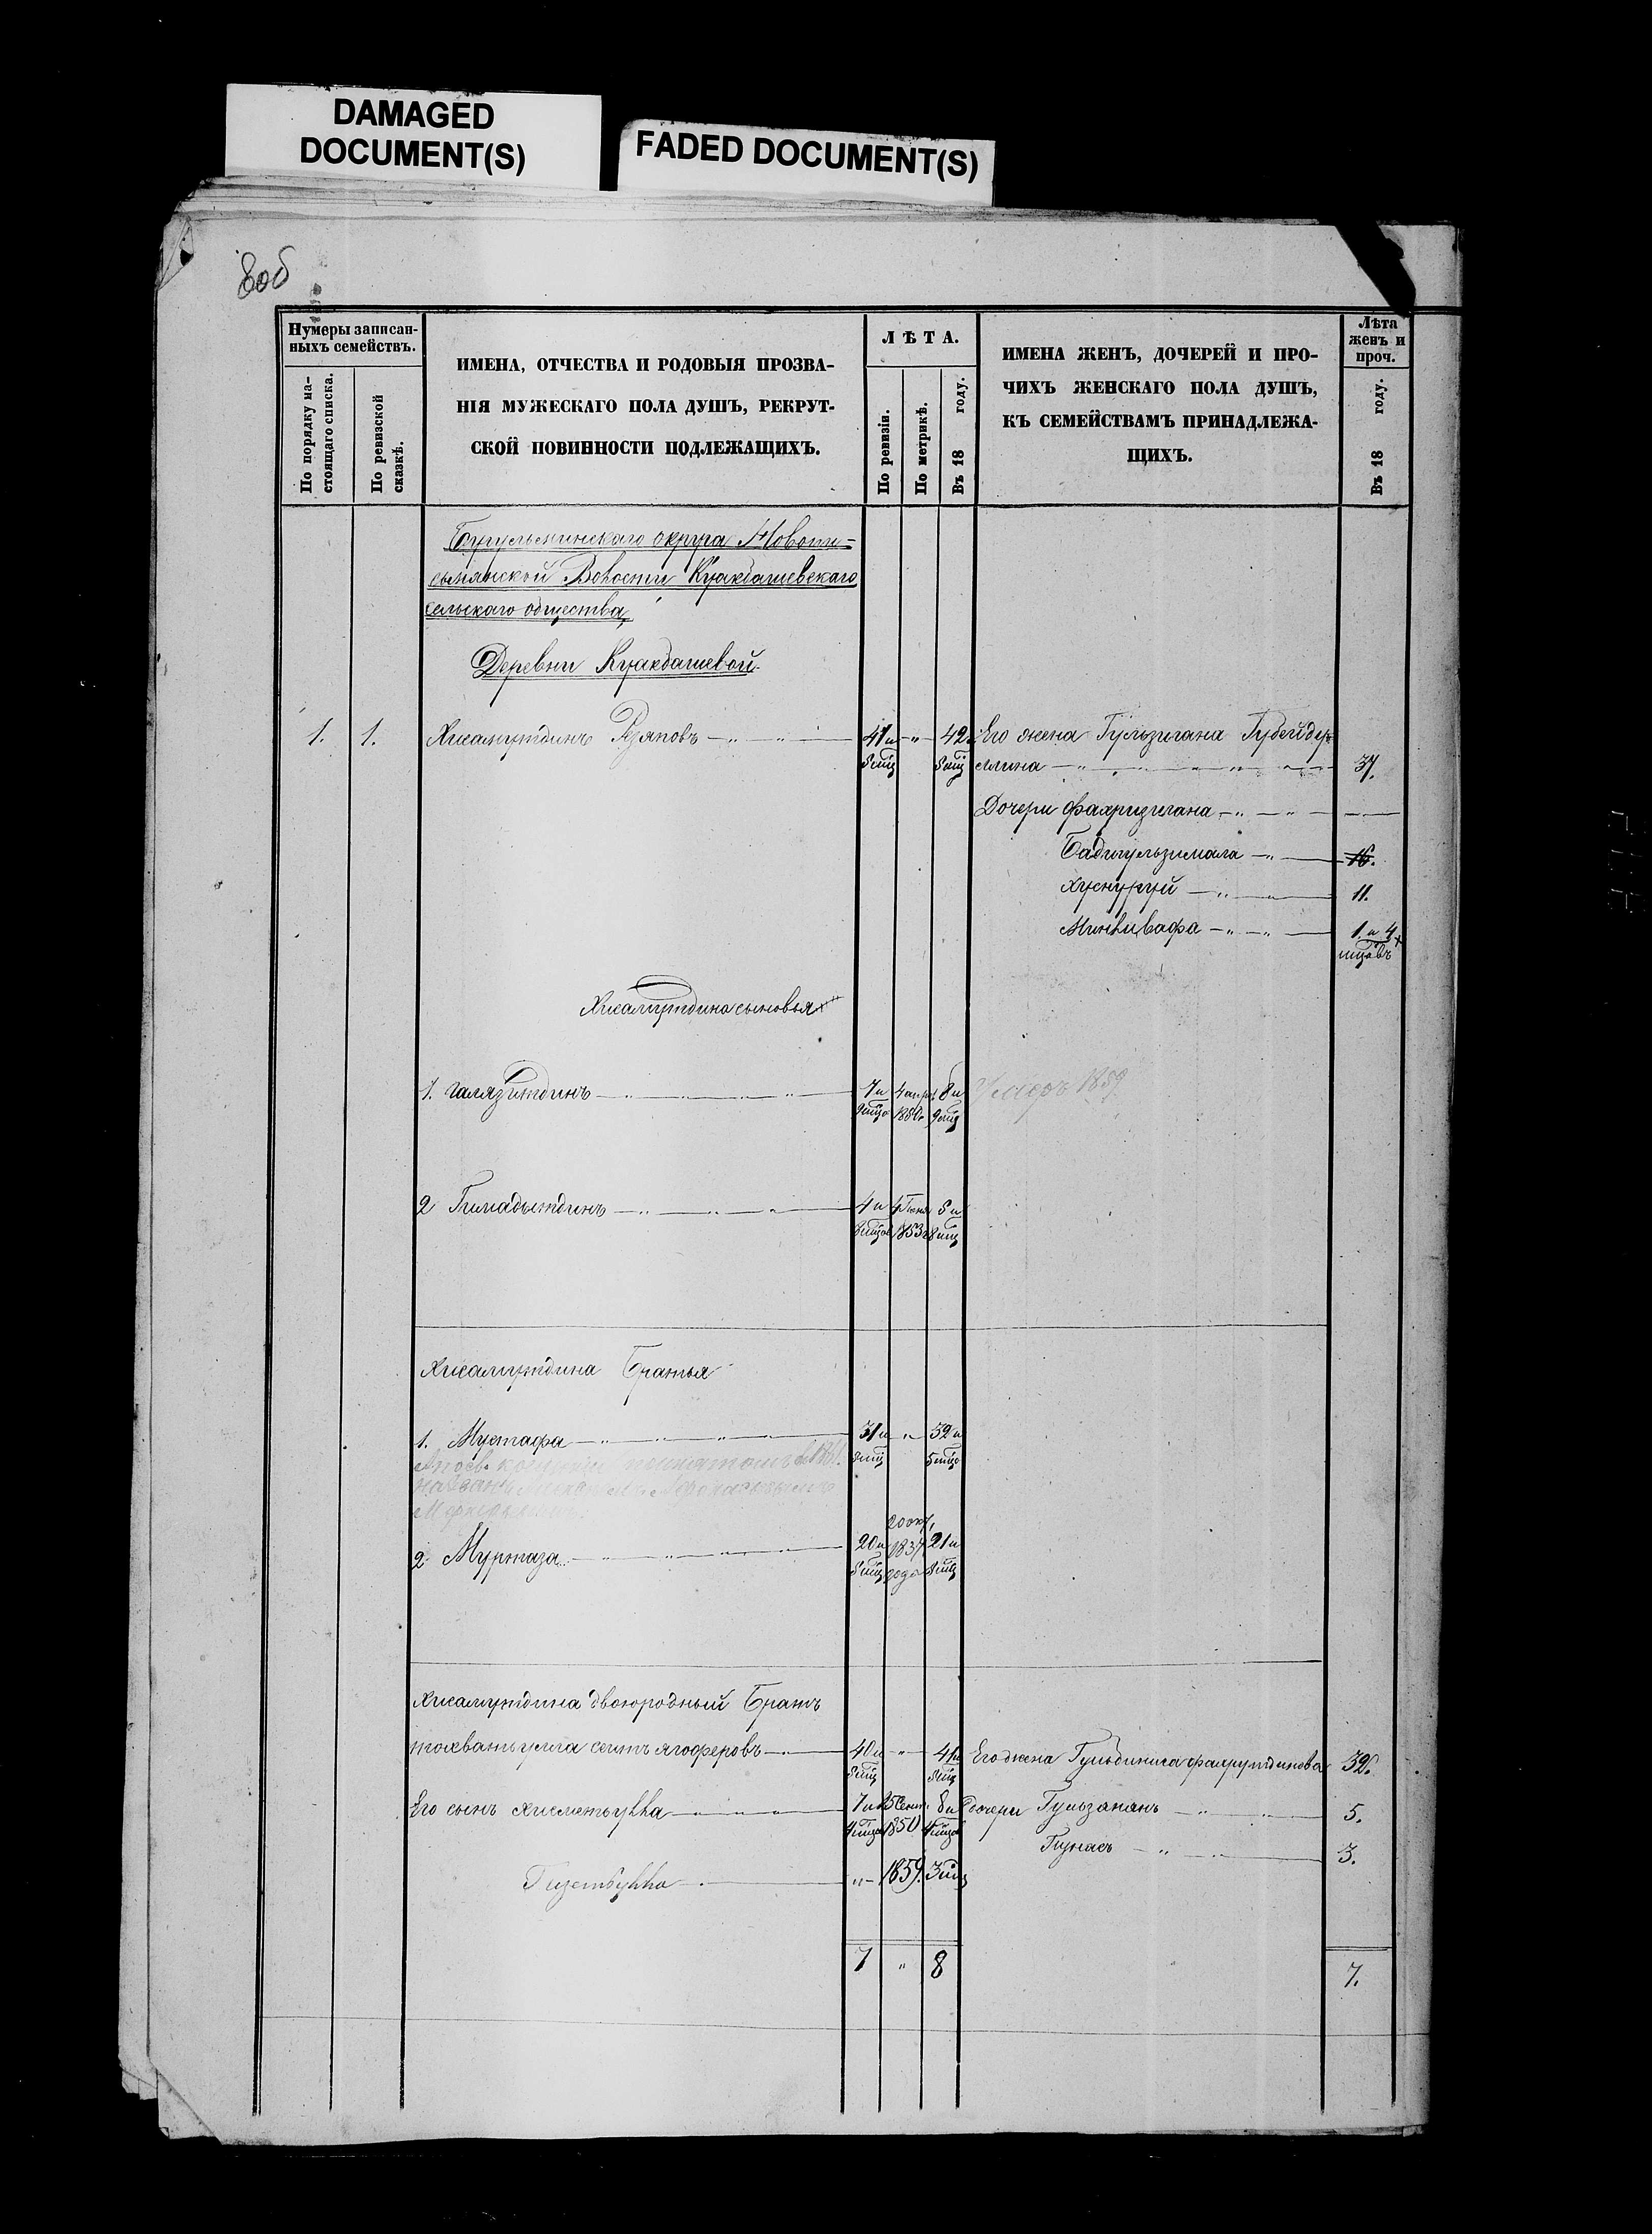 DAMAGED
DOCUMENT(S)
FADED DOCUMENT(S)
8об
Нумеры записан-
ныхъ семействъ.
По порядку на-
стоящаго списка.
По ревизской
сказкѣ.
ИМЕНА, ОТЧЕСТВА И РОДОВЫЯ ПРОЗВА-
НІЯ МУЖЕСКАГО ПОЛА ДУШЪ, РЕКРУТ-
СКОЙ ПОВИННОСТИ ПОДЛЕЖАЩИХЪ.
ЛѢТА.
По ревизіи.
По метрикѣ.
Въ 18 году.
ИМЕНА ЖЕНЪ, ДОЧЕРЕЙ И ПРО-
ЧИХЪ ЖЕНСКАГО ПОЛА ДУШЪ,
КЪ СЕМЕЙСТВАМЪ ПРИНАДЛЕЖА-
ЩИХЪ.
Лѣта
женъ и
проч.
Въ 18 году.
Бугульминскаго округа Новопи-
сьмянской Волости Куакбашевскаго
сельскаго общества,
Деревни Куакбашевой.
1. 1. Хисамутдинъ Рѣзяповъ 41 и 42 Его жена Гульзигана Губейдул-
8 мц 8 мц ллина 37.
Дочери Фахризигана
Бадигульзимала 16.
Хуснуруй 11.
Миннивафа 1. и 4
мцовъ
Хисамутдина сыновья
1. Галязитдинъ 7 и 4 апр. 8 и Умеръ 1859
9 мцо 1850г 9 мц
2 Гимадытдинъ 4 и 4 Генв 5 и
8 мцов 1853г 8 мц
Хисамутдина Братья
1. Мустафа 31 и 32 и
8 мц 8 мцо
2. Муртаза 20 и 20 окт, 1837 года 21 и
8 мц 8 мц
Хисамутдина двоюродный Братъ
Тохватулла Сеитъ Ягоферовъ 40 и 41 и Его жена Гульбиниса Фахрутдинова 32.
8 мц 8 мц
Его сынъ Хисметулла 7 и 15 Сент. 8 и Дочери Гульзанянъ 5.
4 мца 1850 4 мца
Гунасъ 3.
Гизетулла 1859. 3 мц
7 8 7.